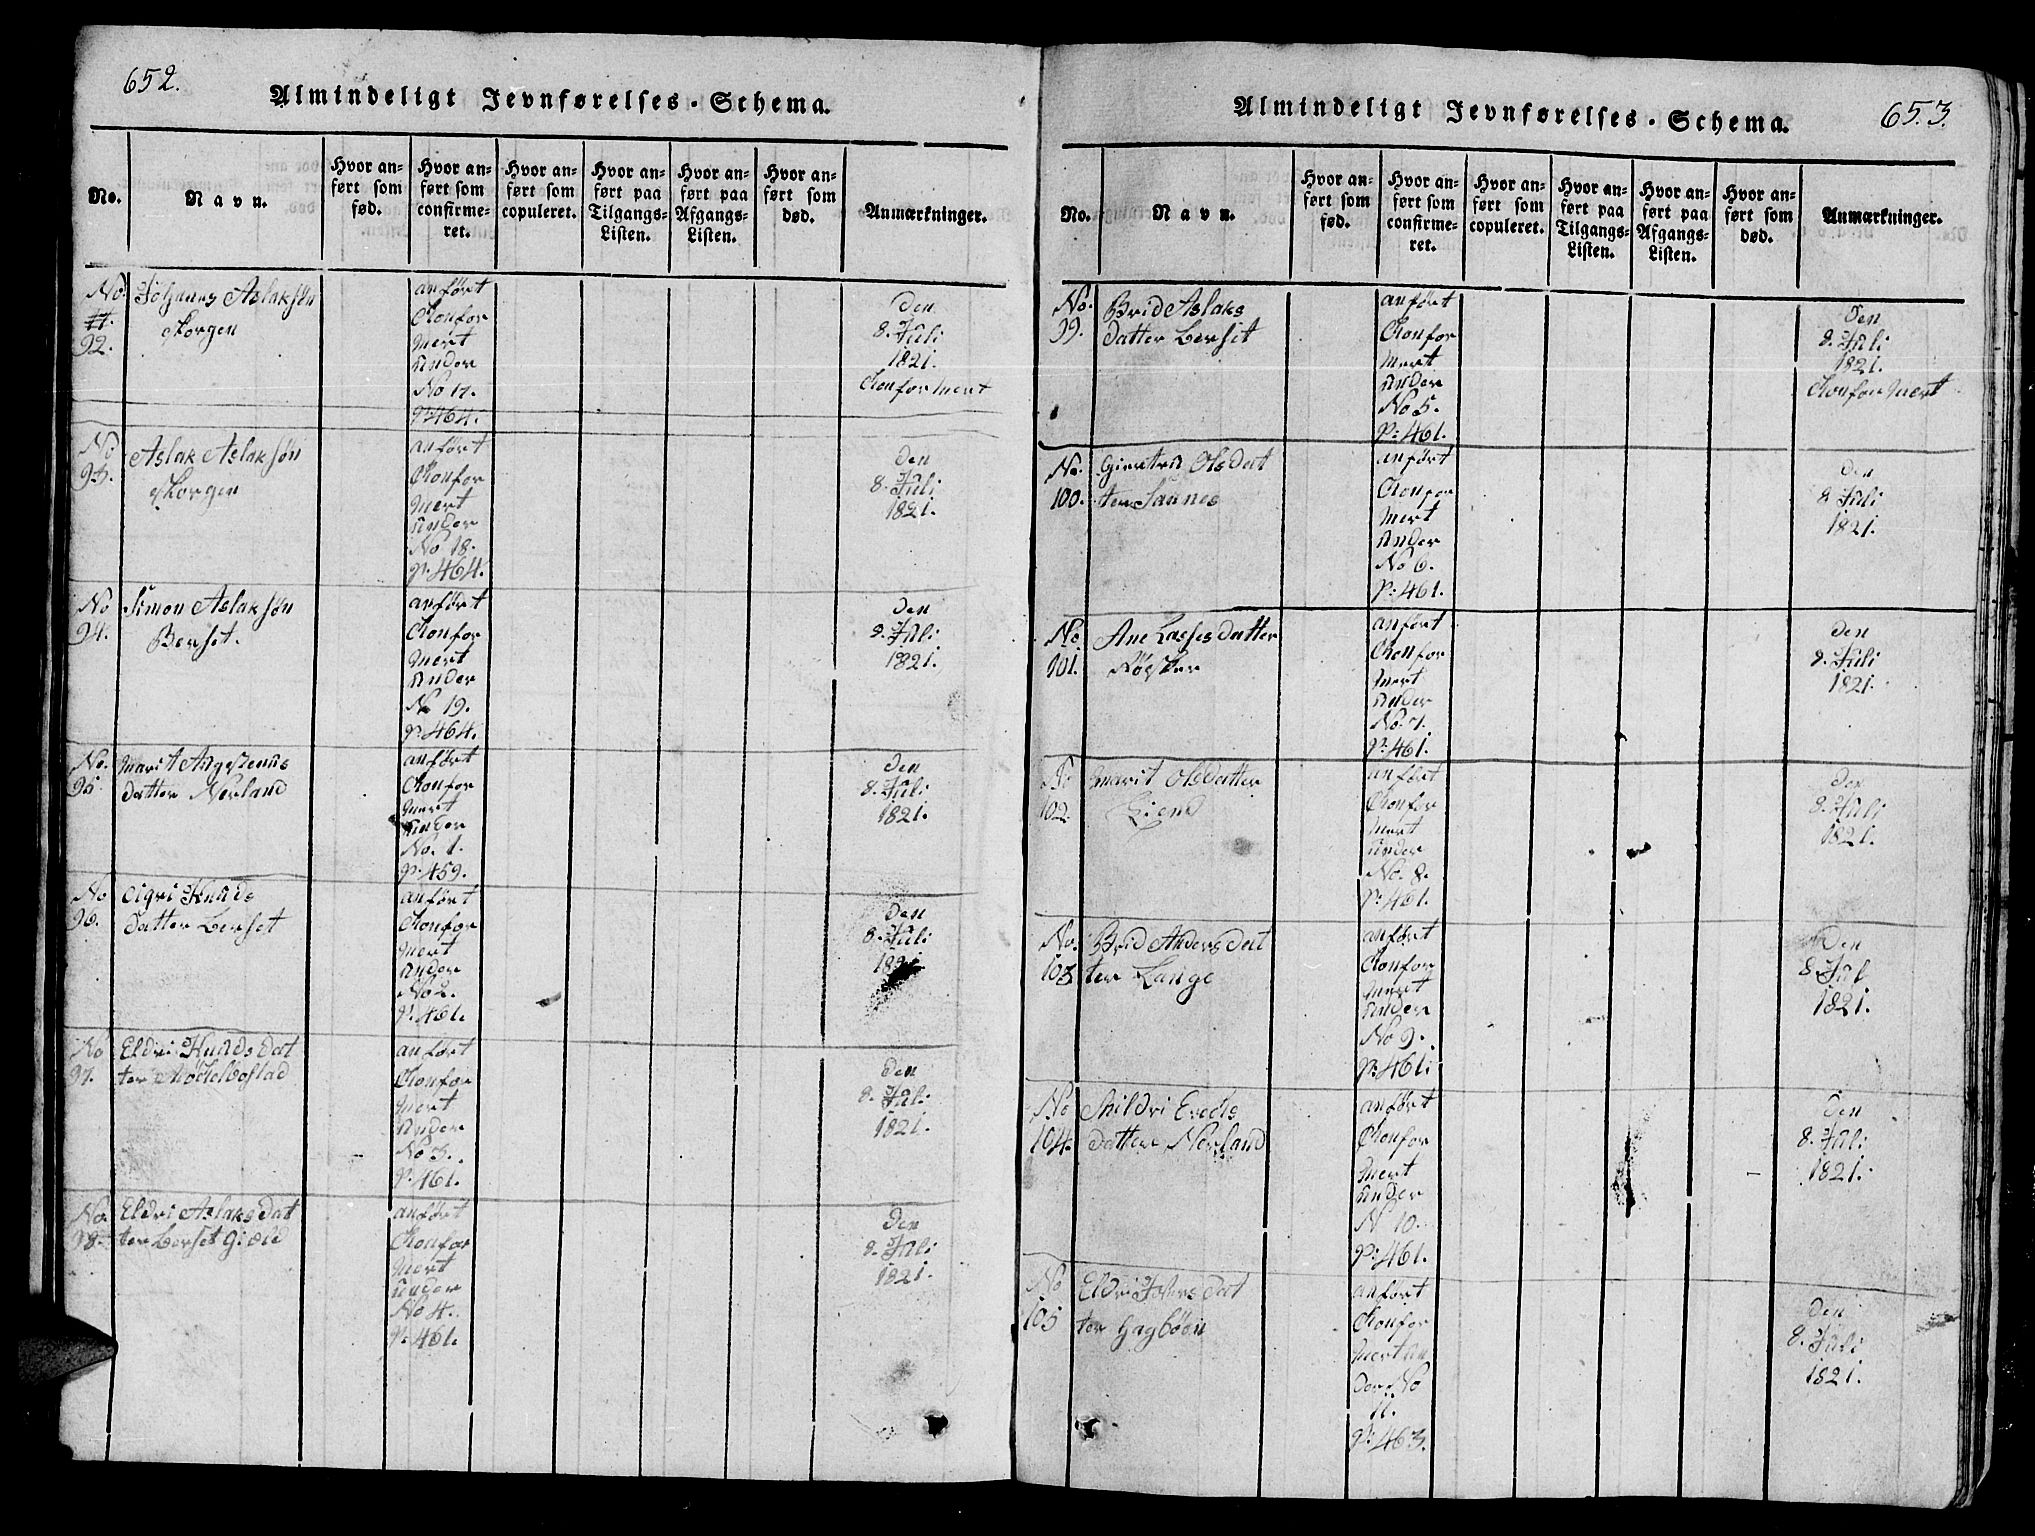 652.
Almindeligt Jevnførelses-Schema.
No.
Navn.
Hvor an-
ført som
fød.
Hvor an-
ført som
confirme-
ret.
Hvor an-
ført som
copuleret.
Hvor an-
ført paa
Tilgangs-
Listen.
Hvor an-
ført paa
Afgangs-
Listen.
Hvor an-
ført som
død.
Anmærkninger.
No.
92.
Johanes Aslaksøn
Skorgen
anført
Konfor
mert
under
No 17.
p:464.
Den
8. Juli
1821.
Konformert
No
93.
Aslak Aslaksøn
Skorgen
anført
Konfor
mert
under
No 18.
p:464.
Den
8. Juli
1821.
No
94.
Simon Aslaksøn
Berset.
anført
Konfor
mert
under
No 19.
p:464.
Den
8. Juli
1821.
No.
95.
Marit
datter Nerland
anført
Konfor
mert
under
No. 1.
p:459.
Den
8. Juli
1821.
No
96.
Sigri Knuds
datter Berset
anført
Konfor
mert
under
No 2.
p:461.
Den
8. Juli
1821
No
97.
Eldri Knuds dat
ter
anført
Konfor
mert
under
No 3.
p:461.
Den
8. Juli
1821.
No.
98.
Eldri Aslaks dat
ter Berset
anført
Konfor
mert
under
No 4.
p:461.
Den
8. Juli
1821.
653.
Almindeligt Jevnførelses-Schema.
No.
Navn.
Hvor an-
ført som
fød.
Hvor an-
ført som
confirme-
ret.
Hvor an-
ført som
copuleret.
Hvor an-
ført paa
Tilgangs-
Listen.
Hvor an-
ført paa
Afgangs-
Listen.
Hvor an-
ført som
død.
Anmærkninger.
No.
99.
Brid Aslaks
datter Berset
anført
Konfor
mert
under
No 5.
p:461.
Den
8. Juli
1821.
Konformert
No.
100.
Giertru Olsdat
ter Saanes
anført
Konfor
mert
under
No 6.
p:461.
Den
8 Juli
1821.
No
101.
Ane Lasses datter
anført
Konfor
mert
under
No. 7.
p:461.
Den
8. Juli
1821.
No
102.
Marit Olsdatter
Lien
anført
Konfor
mert
under
No. 8.
p:461.
Den
8. Juli
1821.
No.
103
Brid Anders dat
ter Lange
anført
Konfor
mert
under
No 9.
p:461.
Den
8 Jul
1821.
No
104.
datter Nerland
anført
Konfor
mert
under
N 10.
p:461.
Den
8. Juli
1821.
No
105
Eldri Ivers dat
ter Hagbøen
anført
Konfor
mert un
der No
11.
p:463.
Den
8. Juli
1821.